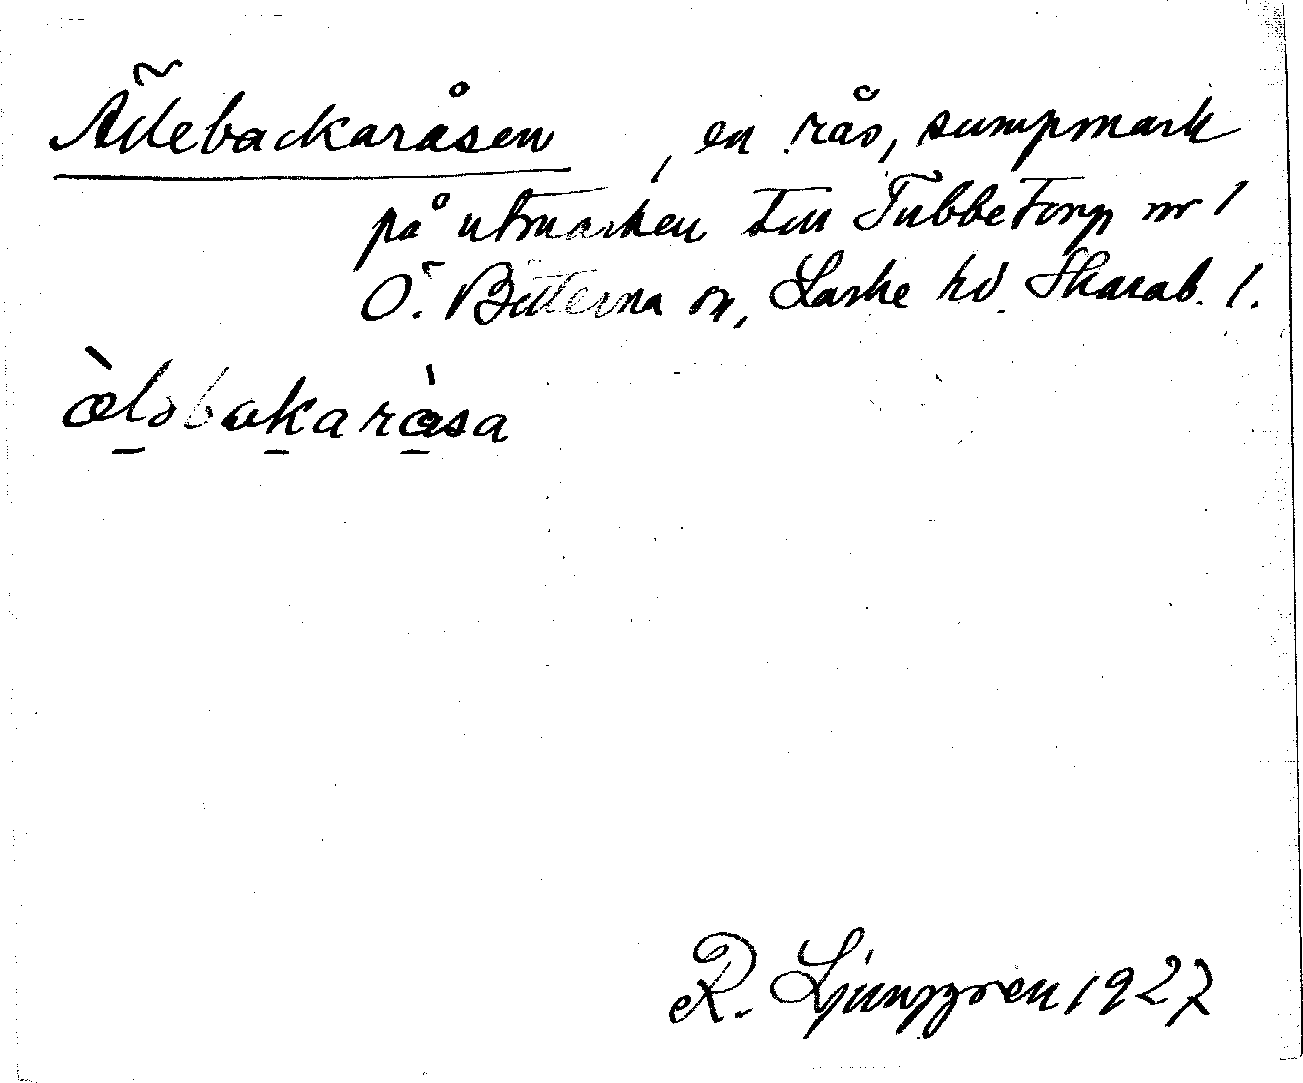 Äilebackaråsen, en rås, sumpmark
på utmarken till Tubbetorp nr 1
Ö. Bitterna sn, Laske hd. Skarab. l.
æ̀ləbakaràsa
R. Ljunggren 1927